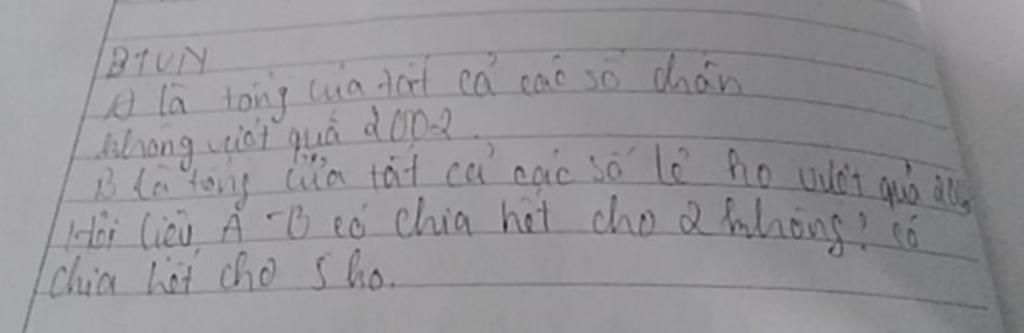 BTVN
A là tổng của tất cả các số chẵn
không vượt quá 2002.
B là tổng của tất cả các số lẻ ko vượt quá
Hỏi liệu A - B có chia hết cho 2 không? có
chia hết cho 5 ko.